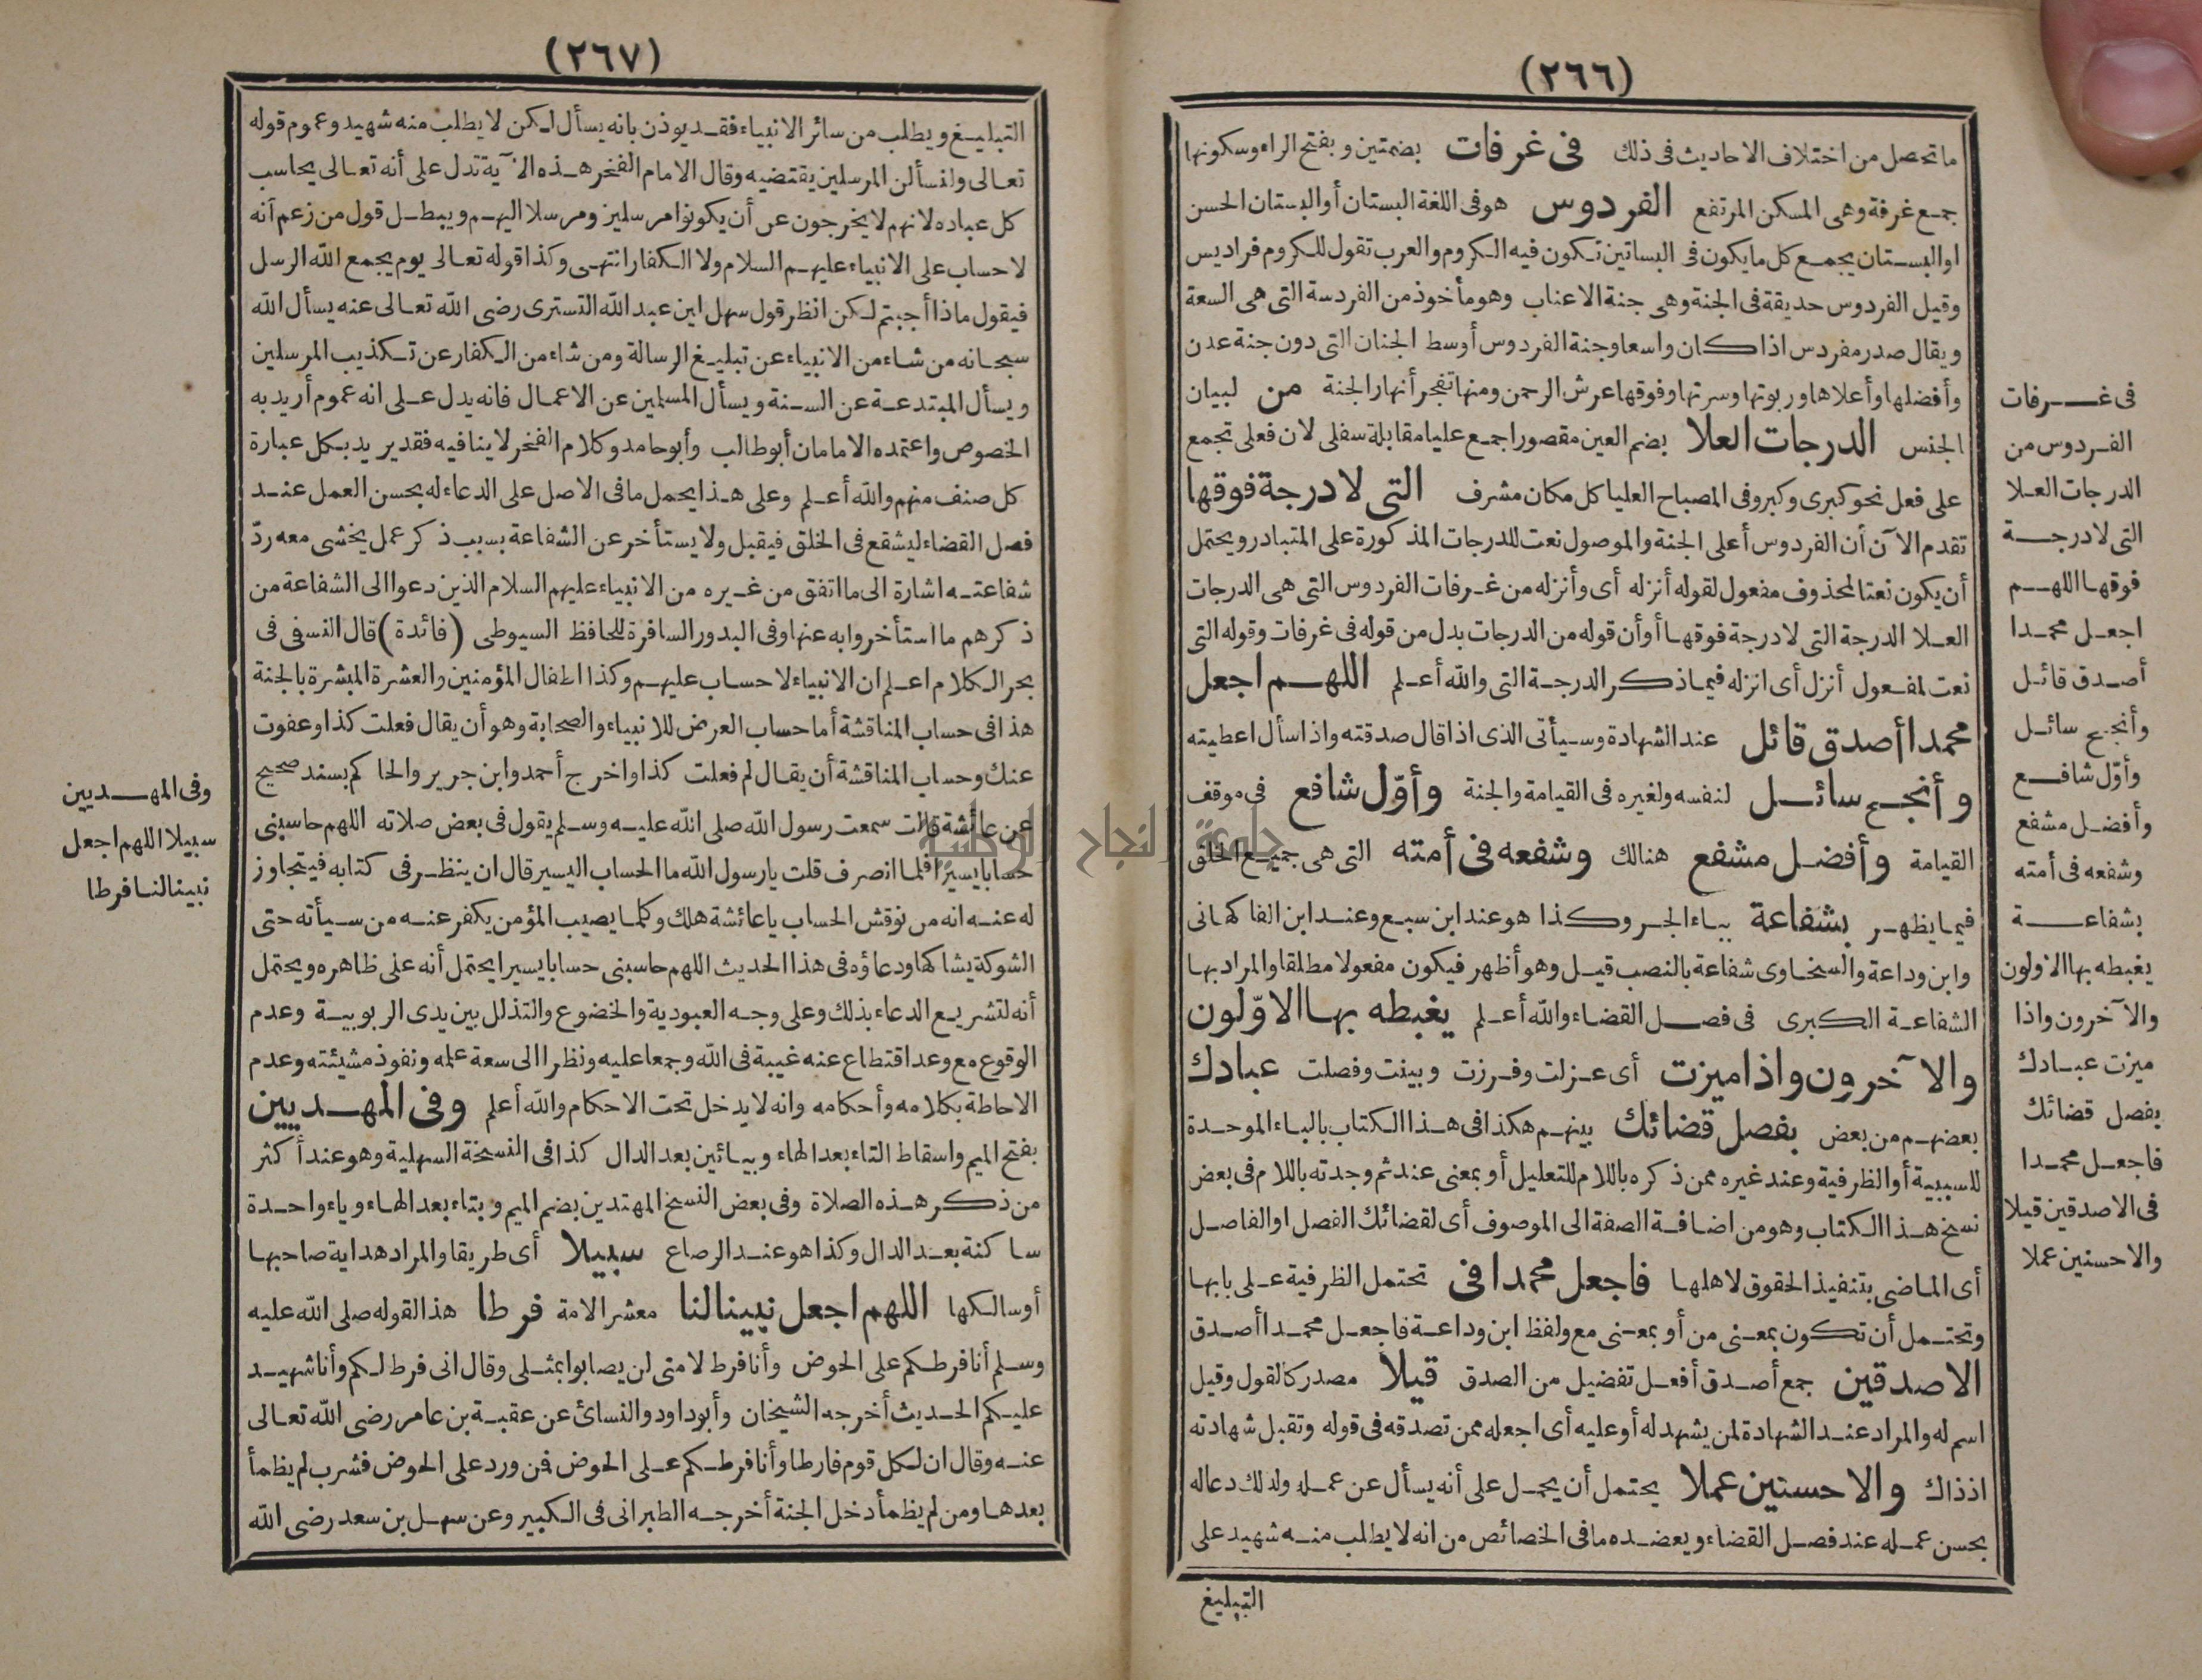 (٢٦٦)
ما تحصل من اختلاف الاحاديث فى ذلك فى غرفات بضمتين وبفتح الراء وسكونها
جمع غرفة وهى المسكن المرتفع الفردوس هو فى اللغة البستان أو البستان الحسن
او البستان يجمع كل ما يكون فى البساتين تكون فيه الكروم والعرب تقول للكروم فراديس
وقيل الفردوس حديقة فى الجنة وهى جنة الاعناب وهو مأخوذ من الفردسة التى هى السعة
ويقال صدر مفردس اذا كان واسعا وجنة الفردوس أوسط الجنان التى دون جنة عدن
وأفضلها وأعلاها وربوتها وسرتها وفوقها عرش الرحمن ومنها تفجر أنهار الجنة من لبيان
الجنس الدرجات العلا بضم العين مقصورا جمع عليا مقابلة سفلى لان فعلى تجمع
على فعل نحو كبرى وكبر وفى المصباح العليا كل مكان مشرف التى لا درجة فوقها
تقدم الآن أن الفردوس أعلى الجنة والموصول نعت للدرجات المذكورة على المتبادر ويحتمل
أن يكون نعتا لمحذوف مفعول لقوله أنزله أى وأنزله من غرفات الفردوس التى هى الدرجات
العلا الدرجة التى لا درجة فوقها أو أن قوله من الدرجات بدل من قوله فى غرفات وقوله التى
نعت لمفعول أنزل أى انزله فيما ذكر الدرجة التى والله أعلم اللهم اجعل
محمدا أصدق قائل عند الشهادة وسيأتى الذى اذا قال صدقته واذا سأل اعطيته
وأنجح سائل لنفسه ولغيره فى القيامة والجنة وأوّل شافع فى موقف
القيامة وأفضل مشفع هنالك وشفعه فى أمته التى هى جميع الخلق
فيما يظهر بشفاعة بباء الجر وكذا هو عند ابن سبع وعند ابن الفاكهانى
وابن وداعة والسخاوى شفاعة بالنصب قيل وهو أظهر فيكون مفعولا مطلقا والمراد بها
الشفاعة الكبرى فى فصل القضاء والله أعلم يغبطه بها الاوّلون
والآخرون واذا ميزت أى عزلت وفرزت وبينت وفصلت عبادك
بعضهم من بعض بفصل قضائك بينهم هكذا فى هذا الكتاب بالباء الموحدة
للسببية أو الظرفية وعند غيره ممن ذكره باللام للتعليل أو بمعنى عند ثم وجدته باللام فى بعض
نسخ هذا الكتاب وهو من اضافة الصفة الى الموصوف أى لقضائك الفصل او الفاصل
أى الماضى بتنفيذ الحقوق لاهلها فاجعل محمدا فى تحتمل الظرفية على بابها
وتحتمل أن تكون بمعنى من أو بمعنى مع ولفظ ابن وداعة فاجعل محمدا أصدق
الاصدقين جمع أصدق أفعل تفضيل من الصدق قيلا مصدر كالقول وقيل
اسم له والمراد عند الشهادة لمن يشهد له أو عليه أى اجعله ممن تصدقه فى قوله وتقبل شهادته
اذذاك والاحسنين عملا يحتمل أن يحمل على أنه يسأل عن عمله ولذلك دعا له
بحسن عمله عند فصل القضاء ويعضده ما فى الخصائص من انه لا يطلب منه شهيد على
التبليغ
فى غرفات
الفردوس من
الدرجات العلا
التى لا درجة
فوقها اللهم
اجعل محمدا
أصدق قائل
وأنجح سائل
وأوّل شافع
وأفضل مشفع
وشفعه فى أمته
بشفاعة
يغبطه بها الاولون
والآخرون واذا
ميزت عبادك
بفصل قضائك
فاجعل محمدا
فى الاصدقين قيلا
والاحسنين عملا
(٢٦٧)
التبليغ ويطلب من سائر الانبياء فقد يوذن بانه يسأل لكن لا يطلب منه شهيد وعموم قوله
تعالى ولنسألن المرسلين يقتضيه وقال الامام الفخر هذه الآية تدل على أنه تعالى يحاسب
كل عباده لانهم لا يخرجون عن أن يكونوا مرسلين ومرسلا اليهم ويبطل قول من زعم أنه
لا حساب على الانبياء عليهم السلام ولا الكفار انتهى وكذا قوله تعالى يوم يجمع الله الرسل
فيقول ماذا أجبتم لكن انظر قول سهل ابن عبد الله التسترى رضى الله تعالى عنه يسأل الله
سبحانه من شاء من الانبياء عن تبليغ الرسالة ومن شاء من الكفار عن تكذيب المرسلين
ويسأل المبتدعة عن السنة ويسأل المسلمين عن الاعمال فانه يدل على انه عموم أريد به
الخصوص واعتمده الامامان أبو طالب وأبو حامد وكلام الفخر لا ينافيه فقد يريد بكل عبارة
كل صنف منهم والله أعلم وعلى هذا يحمل ما فى الاصل على الدعاء له بحسن العمل عند
فصل القضاء ليشفع فى الخلق فيقبل ولا يستأخر عن الشفاعة بسبب ذكر عمل يخشى معه ردّ
شفاعته اشارة الى ما اتفق من غيره من الانبياء عليهم السلام الذين دعوا الى الشفاعة من
ذكرهم ما استأخروا به عنها وفى البدور السافرة للحافظ السيوطى (فائدة) قال النسفى فى
بحر الكلام اعلم ان الانبياء لا حساب عليهم وكذا اطفال المؤمنين والعشرة المبشرة بالجنة
هذا فى حساب المناقشة أما حساب العرض للانبياء والصحابة وهو أن يقال فعلت كذا وعفوت
عنك وحساب المناقشة أن يقال لم فعلت كذا واخرج أحمد وابن جرير والحاكم بسند صحيح
عن عائشة قالت سمعت رسول الله صلى الله عليه وسلم يقول فى بعض صلاته اللهم حاسبنى
حسابا يسيرا فلما انصرف قلت يارسول الله ما الحساب اليسير قال ان ينظر فى كتابه فيتجاوز
له عنه انه من نوقش الحساب ياعائشة هلك وكلما يصيب المؤمن يكفر عنه من سيأته حتى
الشوكة يشاكها ودعاؤه فى هذا الحديث اللهم حاسبنى حسابا يسيرا يحتمل أنه على ظاهره ويحتمل
أنه لتشريع الدعاء بذلك وعلى وجه العبودية والخضوع والتذلل بين يدى الربوبية وعدم
الوقوع مع وعد اقتطاع عنه غيبة فى الله وجمعا عليه ونظرا الى سعة علمه ونفوذ مشيئته وعدم
الاحاطة بكلامه وأحكامه وانه لا يدخل تحت الاحكام والله أعلم وفى المهديين
بفتح الميم واسقاط التاء بعد الهاء وبيائين بعد الدال كذا فى النسخة السهلية وهو عند أكثر
من ذكر هذه الصلاة وفى بعض النسخ المهتدين بضم الميم وبتاء بعد الهاء وياء واحدة
ساكنة بعد الدال وكذا هو عند الرصاع سبيلا أى طريقا والمراد هداية صاحبها
أو سالكها اللهم اجعل نبينا لنا معشر الامة فرطا هذا لقوله صلى الله عليه
وسلم أنا فرطكم على الحوض وأنا فرط لامتى لن يصابوا بمثلى وقال انى فرط لكم وأنا شهيد
عليكم الحديث أخرجه الشيخان وأبو داود والنسائ عن عقبة بن عامر رضى الله تعالى
عنه وقال ان لكل قوم فارطا وأنا فرطكم على الحوض فمن ورد على الحوض فشرب لم يظمأ
بعدها ومن لم يظمأ دخل الجنة أخرجه الطبرانى فى الكبير وعن سهل بن سعد رضى الله
وفى المهديين
سبيلا اللهم اجعل
نبينا لنا فرطا
جامعة النجاح الوطنية